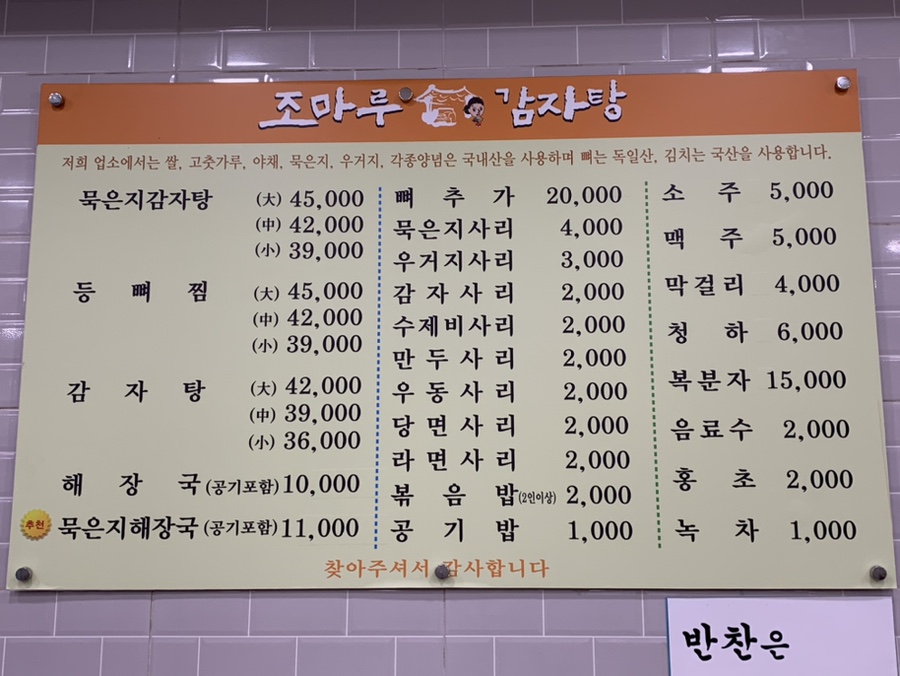 조마루 감자탕
저희 업소에서는 쌀, 고춧가루, 야채, 묵은지, 우거지, 각종양념은 국내산을 사용하며 뼈는 독일산, 김치는 국산을 사용합니다.
묵은지감자탕 (大) 45,000
(中) 42,000
(小) 39,000
등뼈찜 (大) 45,000
(中) 42,000
(小) 39,000
감자탕 (大) 42,000
(中) 39,000
(小) 36,000
해장국(공기포함) 10,000
추천 묵은지해장국(공기포함) 11,000
뼈추가 20,000
묵은지사리 4,000
우거지사리 3,000
감자사리 2,000
수제비사리 2,000
만두사리 2,000
우동사리 2,000
당면사리 2,000
라면사리 2,000
볶음밥(2인이상) 2,000
공기밥 1,000
소주 5,000
맥주 5,000
막걸리 4,000
청하 6,000
복분자 15,000
음료수 2,000
홍초 2,000
녹차 1,000
찾아주셔서 감사합니다
반찬은